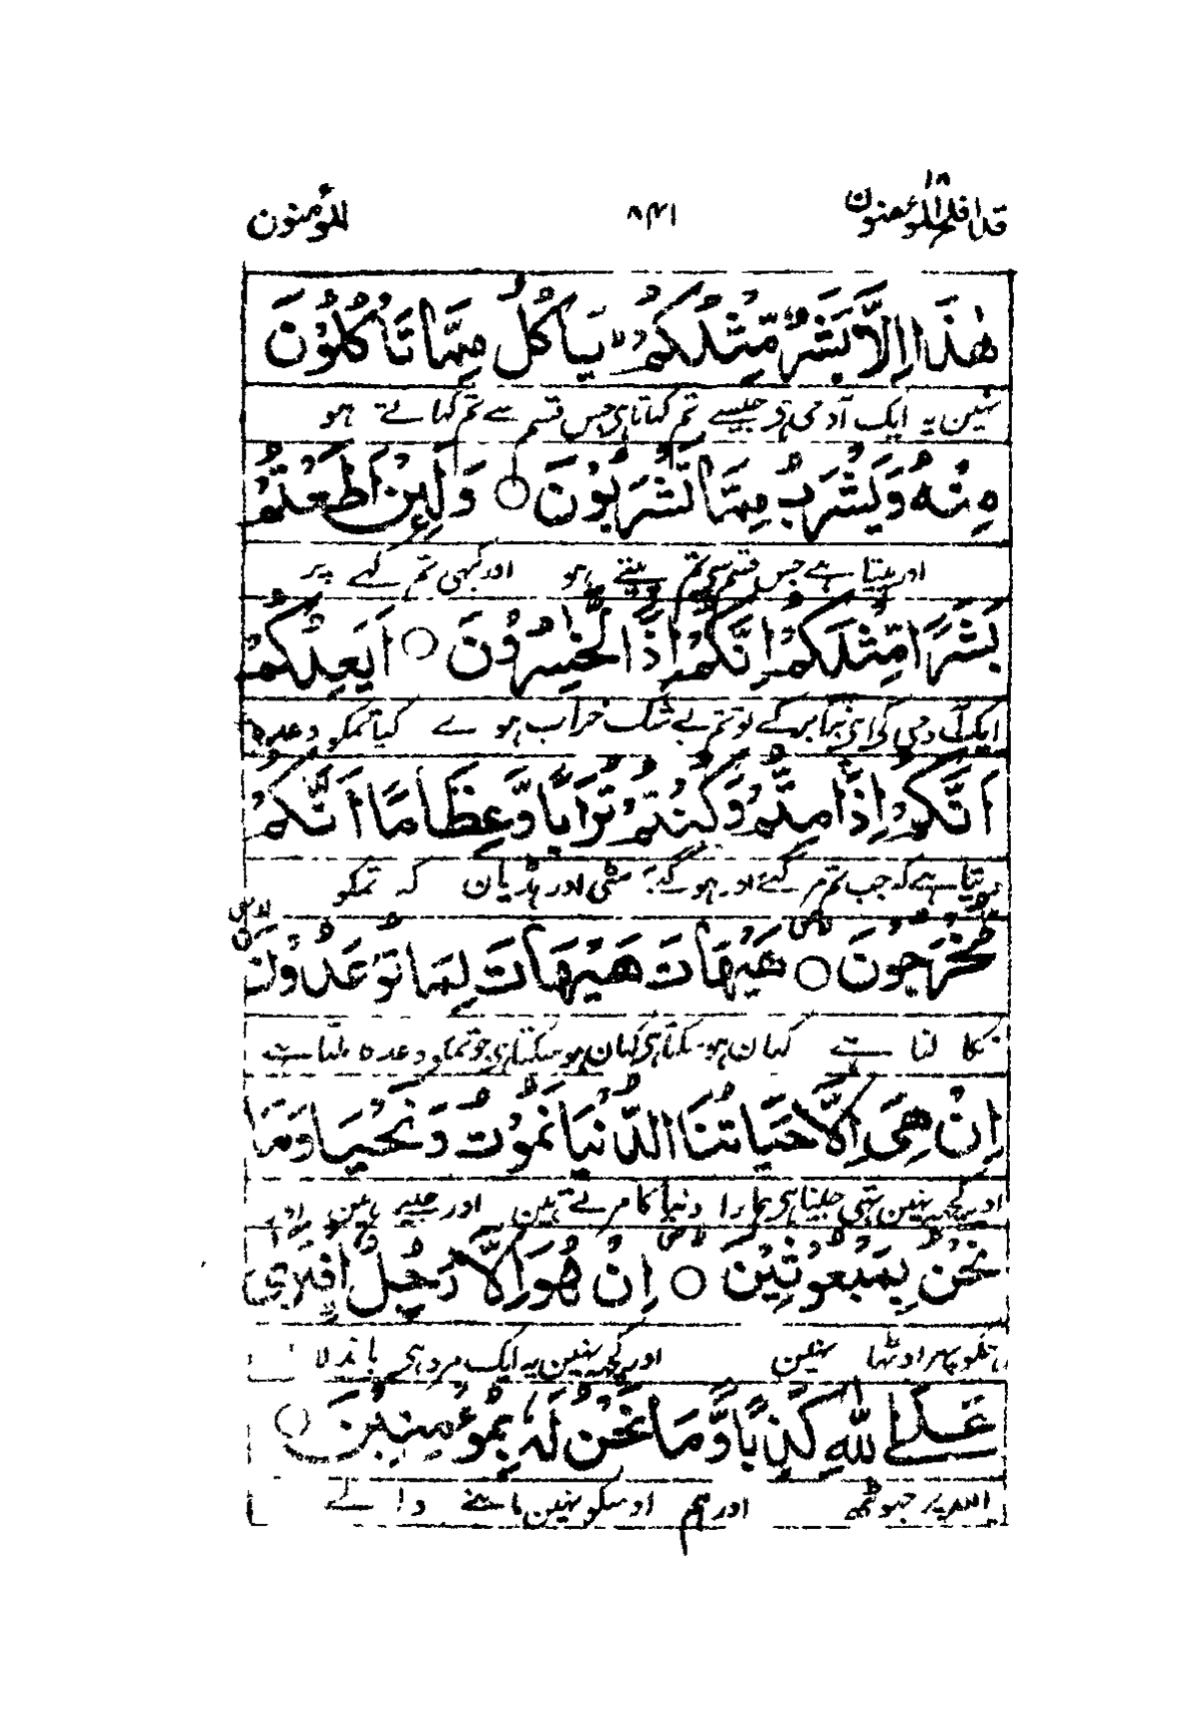 قد افلح المؤمنون ١٨ ٨٤١ المؤمنون
هٰذَا اِلَّا بَشَرٌ مِّثْلُكُمْ يَاْكُلُ مِمَّا تَاْكُلُوْنَ
نہین یہ ایک آدمی ہی جیسے تم کہاتا ہی جس قسم سے تم کہاتے ہو
مِنْهُ وَيَشْرَبُ مِمَّا تَشْرَبُوْنَ ○ وَلَئِنْ اَطَعْتُمْ
اور پیتا ہے جس قسم سی تم پیتے ہو اور کبہی تم کہے پر
بَشَرًا مِّثْلَكُمْ اِنَّكُمْ اِذًا لَّخٰسِرُوْنَ ○ اَيَعِدُكُمْ
ایک آدمی کی اپنی برابر کے تو تم بے شک خراب ہوے کیا تمکو وعدہ
اَنَّكُمْ اِذَا مِتُّمْ وَكُنْتُمْ تُرَابًا وَّعِظَامًا اَنَّكُمْ
دیتا ہے کہ جب تم مر گئے اور ہو گئے مٹی اور ہڈیان کہ تمکو
مُّخْرَجُوْنَ ○ هَيْهَاتَ هَيْهَاتَ لِمَا تُوْعَدُوْنَ
نکالنا ہے کہان ہو سکتا ہی کہان ہو سکتا ہی جو تمکو وعدہ ملتا ہے
اِنْ هِيَ اِلَّا حَيَاتُنَا الدُّنْيَا نَمُوْتُ وَنَحْيَا وَمَا
اور کچہہ نہین یہی جینا ہی ہمارا دنیا کا مرتے ہین اور جیتے ہین اور
نَحْنُ بِمَبْعُوْثِيْنَ ○ اِنْ هُوَ اِلَّا رَجُلٌ افْتَرٰى
ہمکو پہر اوٹہنا نہین اور کچہہ نہین یہ ایک مرد ہی باندہ لا
عَلَى اللّٰهِ كَذِبًا وَّمَا نَحْنُ لَهٗ بِمُؤْمِنِيْنَ ○
اللہ پر جہوٹہہ اور ہم اوسکو نہین ماننے والے